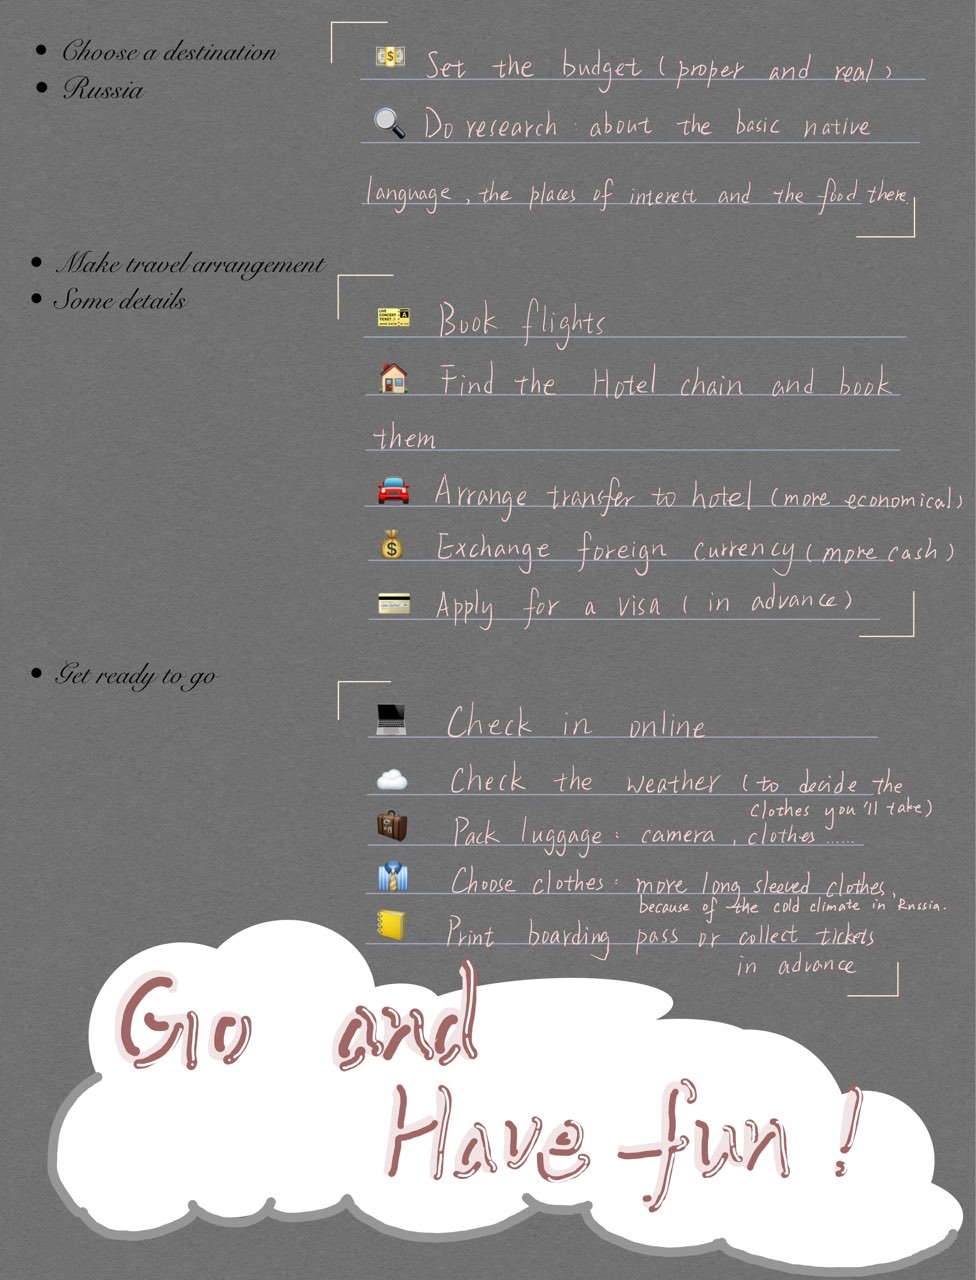 Choose a destination
Russia
Set the budget (proper and real)
Do research : about the basic native
language, the places of interest and the food there.
Make travel arrangement
Some details
Book flights
Find the Hotel chain and book
them
Arrange transfer to hotel (more economical)
Exchange foreign currency (more cash)
Apply for a visa (in advance)
Get ready to go
Check in online
Check the weather (to decide the
clothes you'll take)
Pack luggage: camera, clothes ......
Choose clothes: more long sleeved clothes,
because of the cold climate in Russia.
Print boarding pass or collect tickets
in advance
Go and
Have fun!